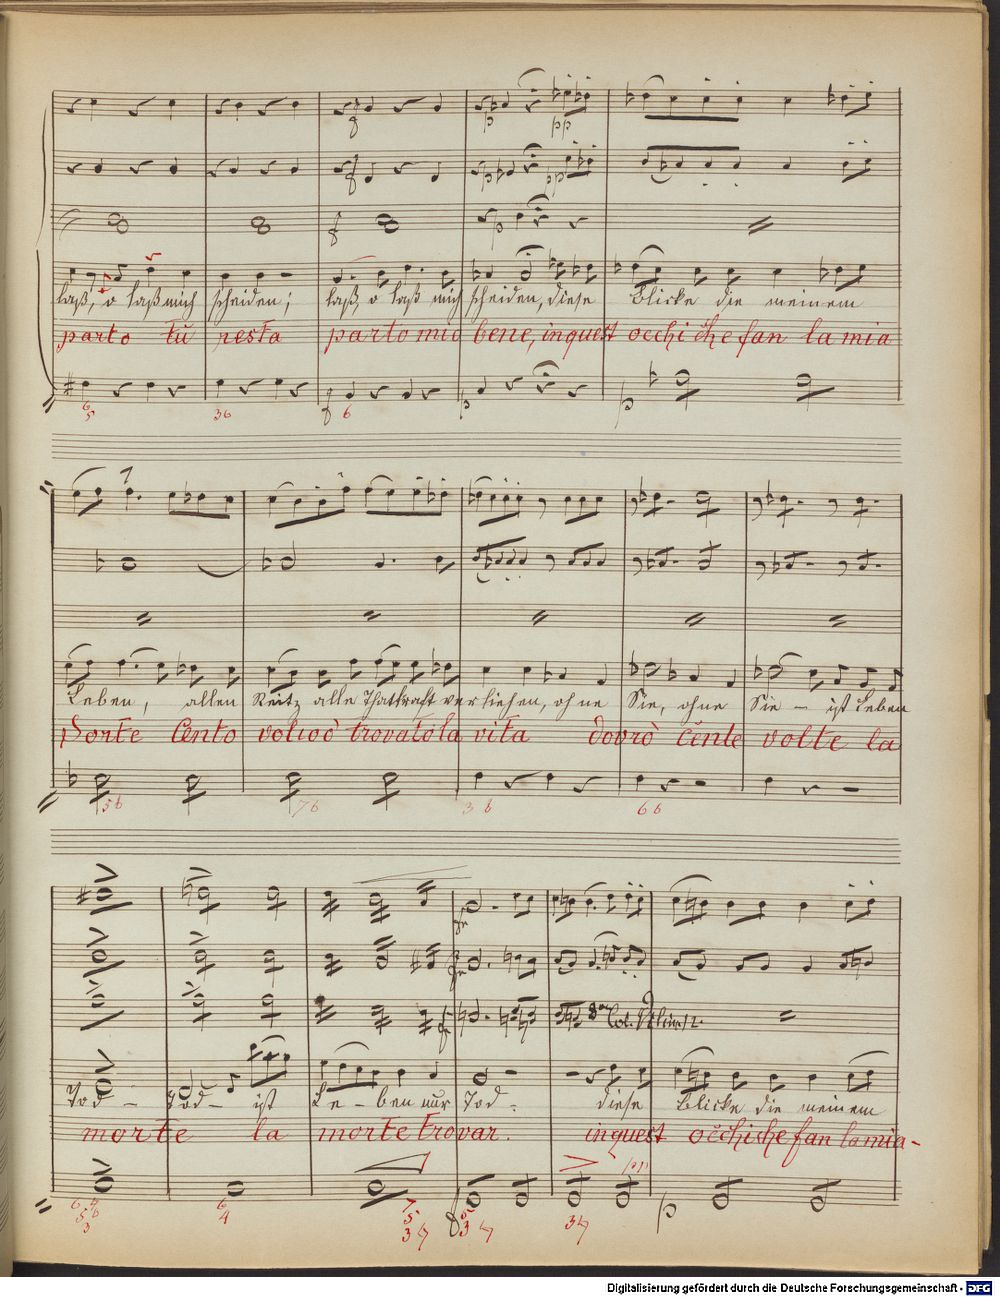 laß, o laß mich scheiden; laß, o laß mich scheiden, diese Blicke die meinem
parto tu resta parto mio bene, in quest occhi che fan la mia
6 5 36 6
p pp
Leben, allen Reitz alle Thatkraft verliehen, ohne Sie, ohne Sie – ist Leben
Sorte Cento volioò trovatola vita dovrò cinte volte la
56 76 36 66
Tod – Tod – ist Le – ben nur Tod. diese Blicke die meinem
morte la morte trovar. in quest occhi che fan la mia-
Digitalisierung gefördert durch die Deutsche Forschungsgemeinschaft - DFG